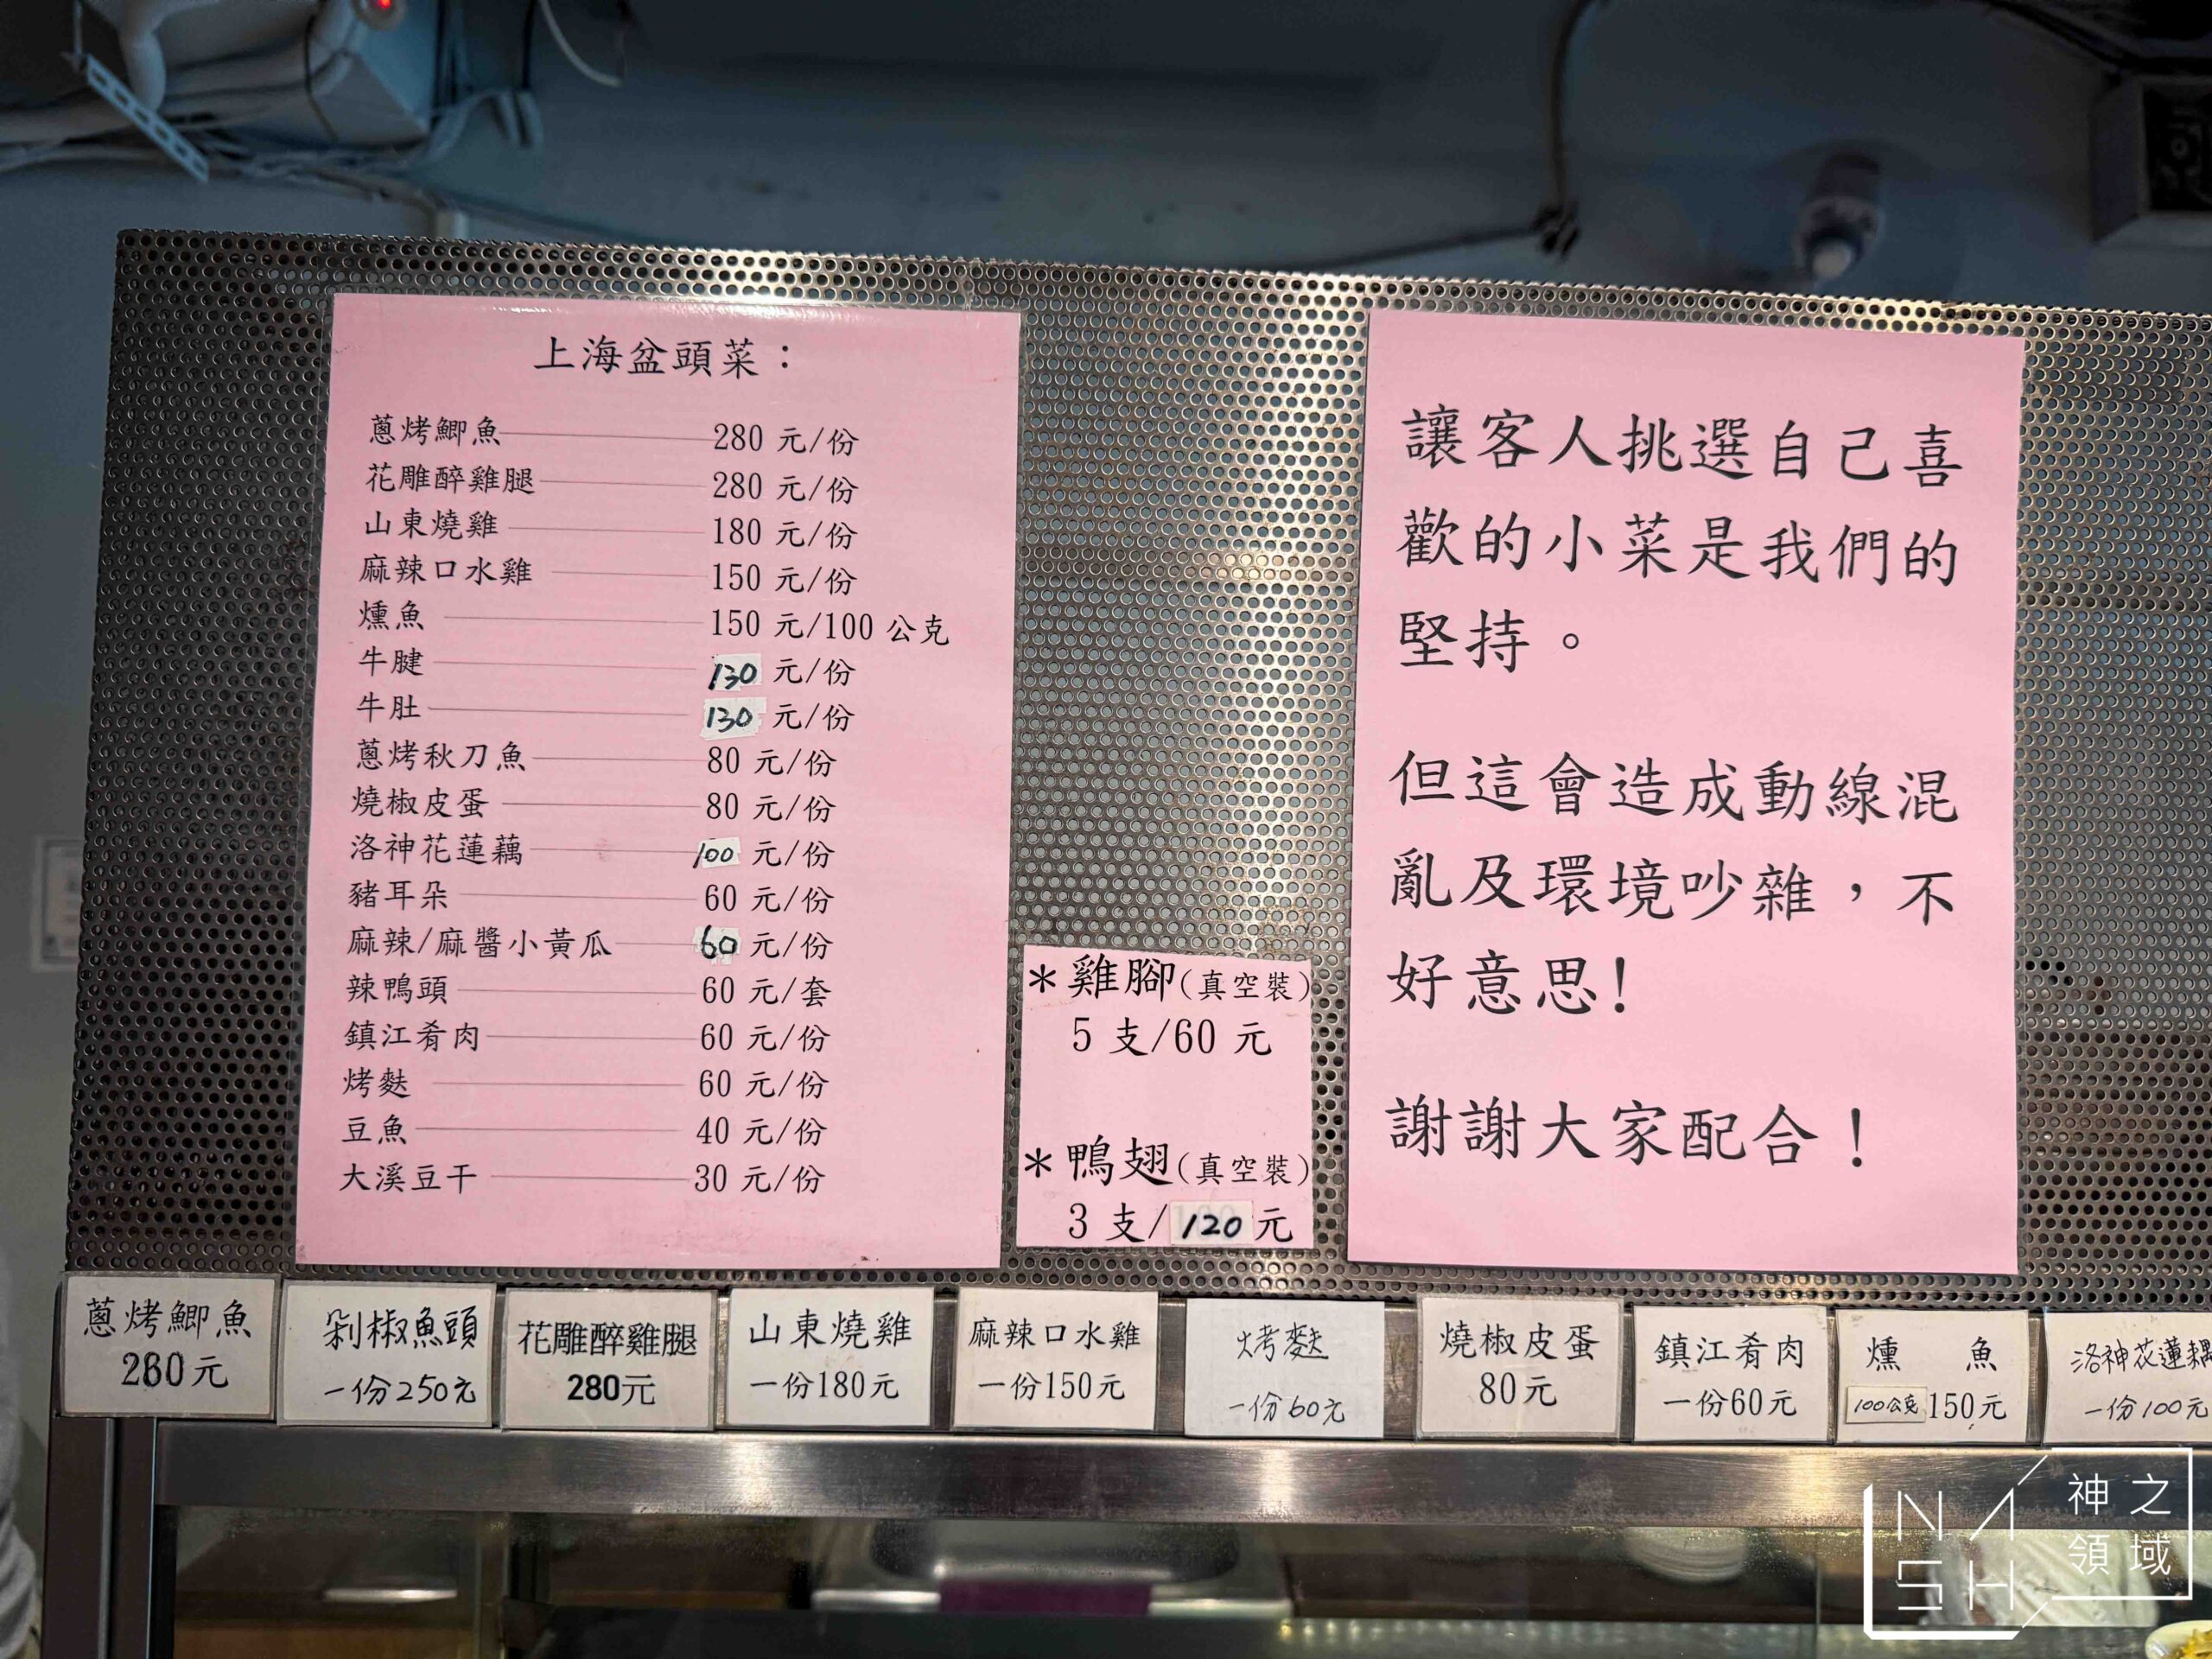 上海盆頭菜：
蔥烤鯽魚 280 元/份
花雕醉雞腿 280 元/份
山東燒雞 180 元/份
麻辣口水雞 150 元/份
燻魚 150 元/100 公克
牛腱 130 元/份
牛肚 130 元/份
蔥烤秋刀魚 80 元/份
燒椒皮蛋 80 元/份
洛神花蓮藕 100 元/份
豬耳朵 60 元/份
麻辣/麻醬小黃瓜 60 元/份
辣鴨頭 60 元/套
鎮江肴肉 60 元/份
烤麩 60 元/份
豆魚 40 元/份
大溪豆干 30 元/份
＊雞腳(真空裝)
5 支/60 元
＊鴨翅(真空裝)
3 支/120元
讓客人挑選自己喜
歡的小菜是我們的
堅持。
但這會造成動線混
亂及環境吵雜，不
好意思!
謝謝大家配合！
蔥烤鯽魚
280元
剁椒魚頭
一份250元
花雕醉雞腿
280元
山東燒雞
一份180元
麻辣口水雞
一份150元
烤麩
一份60元
燒椒皮蛋
80元
鎮江肴肉
一份60元
燻 魚
100公克 150元
洛神花蓮耦
一份100元
NASH
神之
領域